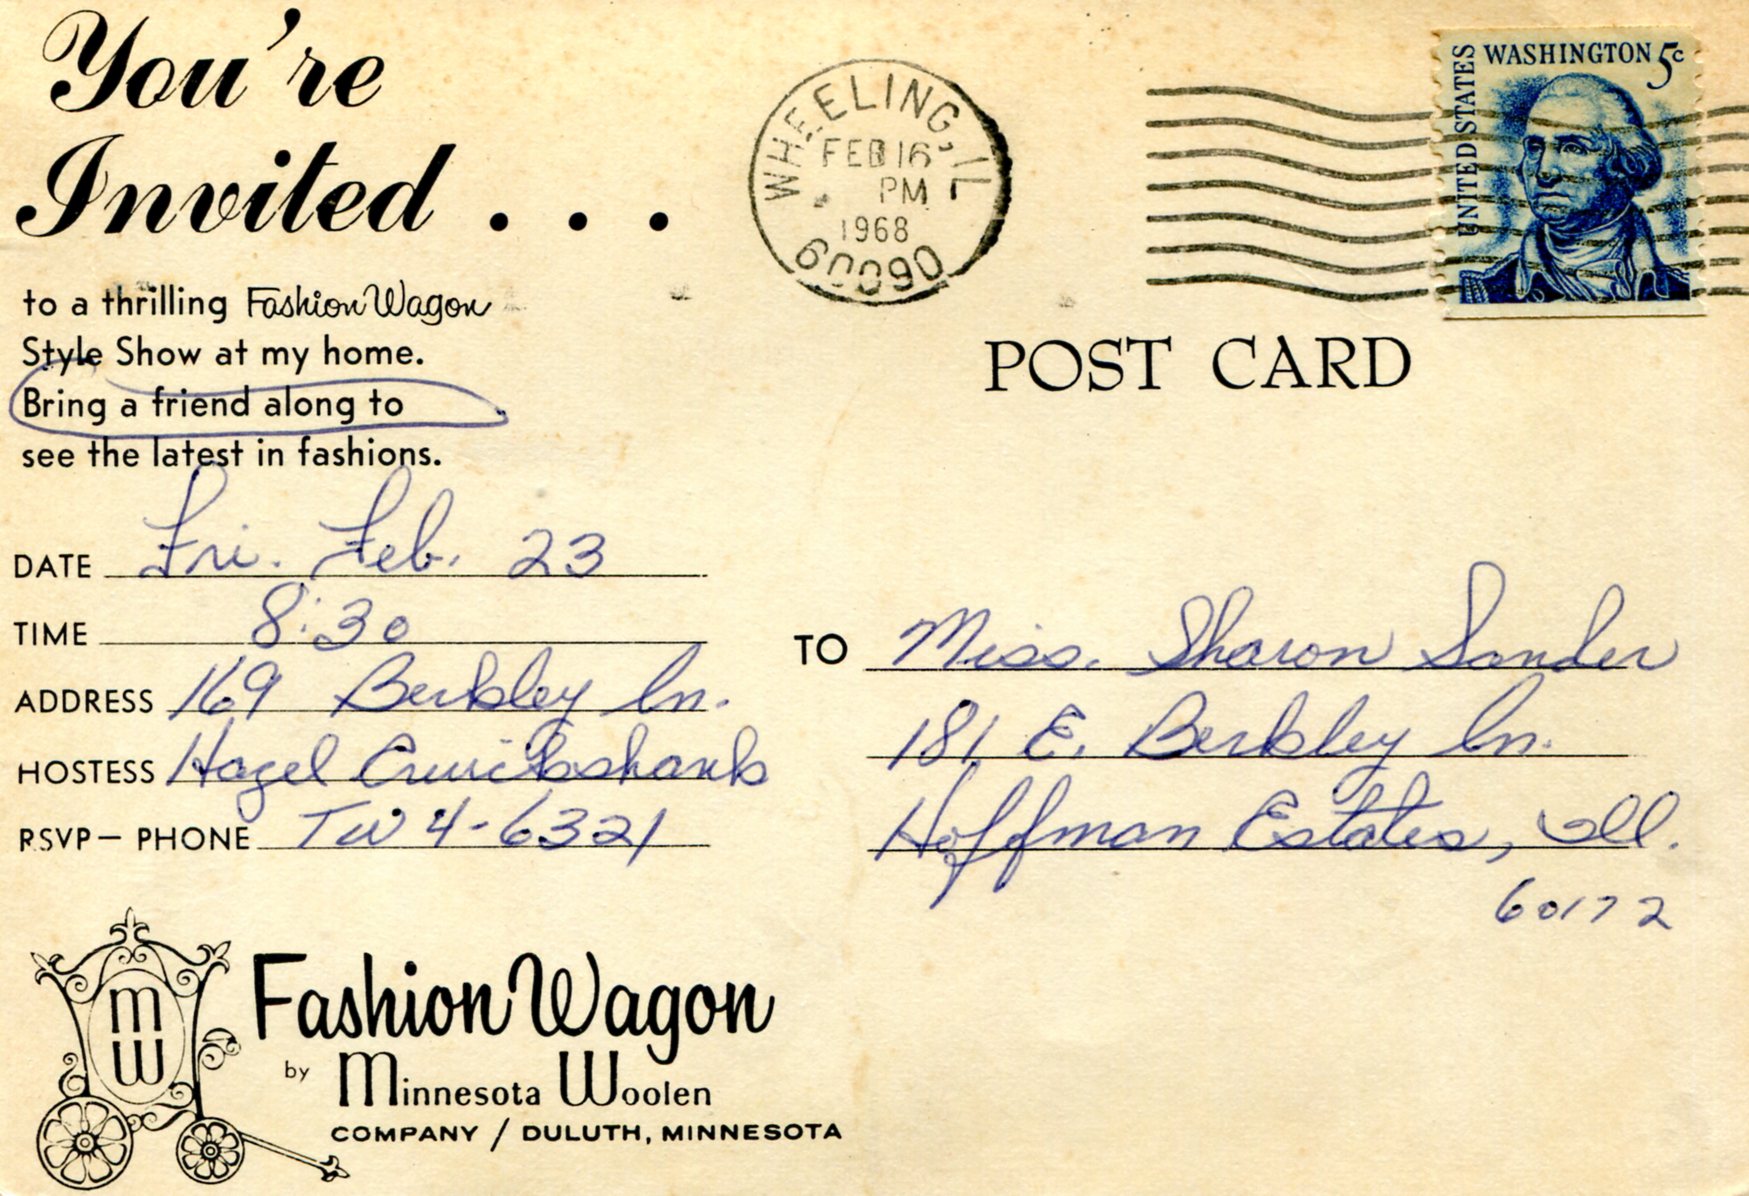 You're
Invited . . .
to a thrilling Fashion Wagon
Style Show at my home.
Bring a friend along to
see the latest in fashions.
DATE Fri. Feb. 23
TIME 8:30
ADDRESS 169 Berkley Ln.
HOSTESS Hazel Cruickshank
RSVP — PHONE TW 4-6321
M
W
Fashion Wagon
by Minnesota Woolen
COMPANY / DULUTH, MINNESOTA
WHEELING, IL
FEB 16
PM
1968
60090
UNITED STATES
WASHINGTON 5c
POST CARD
TO Miss. Sharon Sander
181 E. Berkley Ln.
Hoffman Estates, Ill.
60172